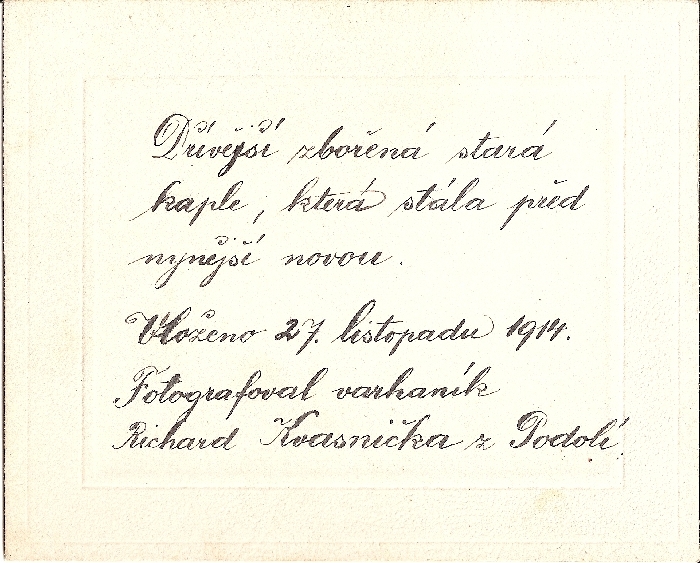 Dřívější zbořená stará
kaple, která stála před
nynější novou.
Vloženo 27. listopadu 1914.
Fotografoval varhaník
Richard Kvasnička z Podolí